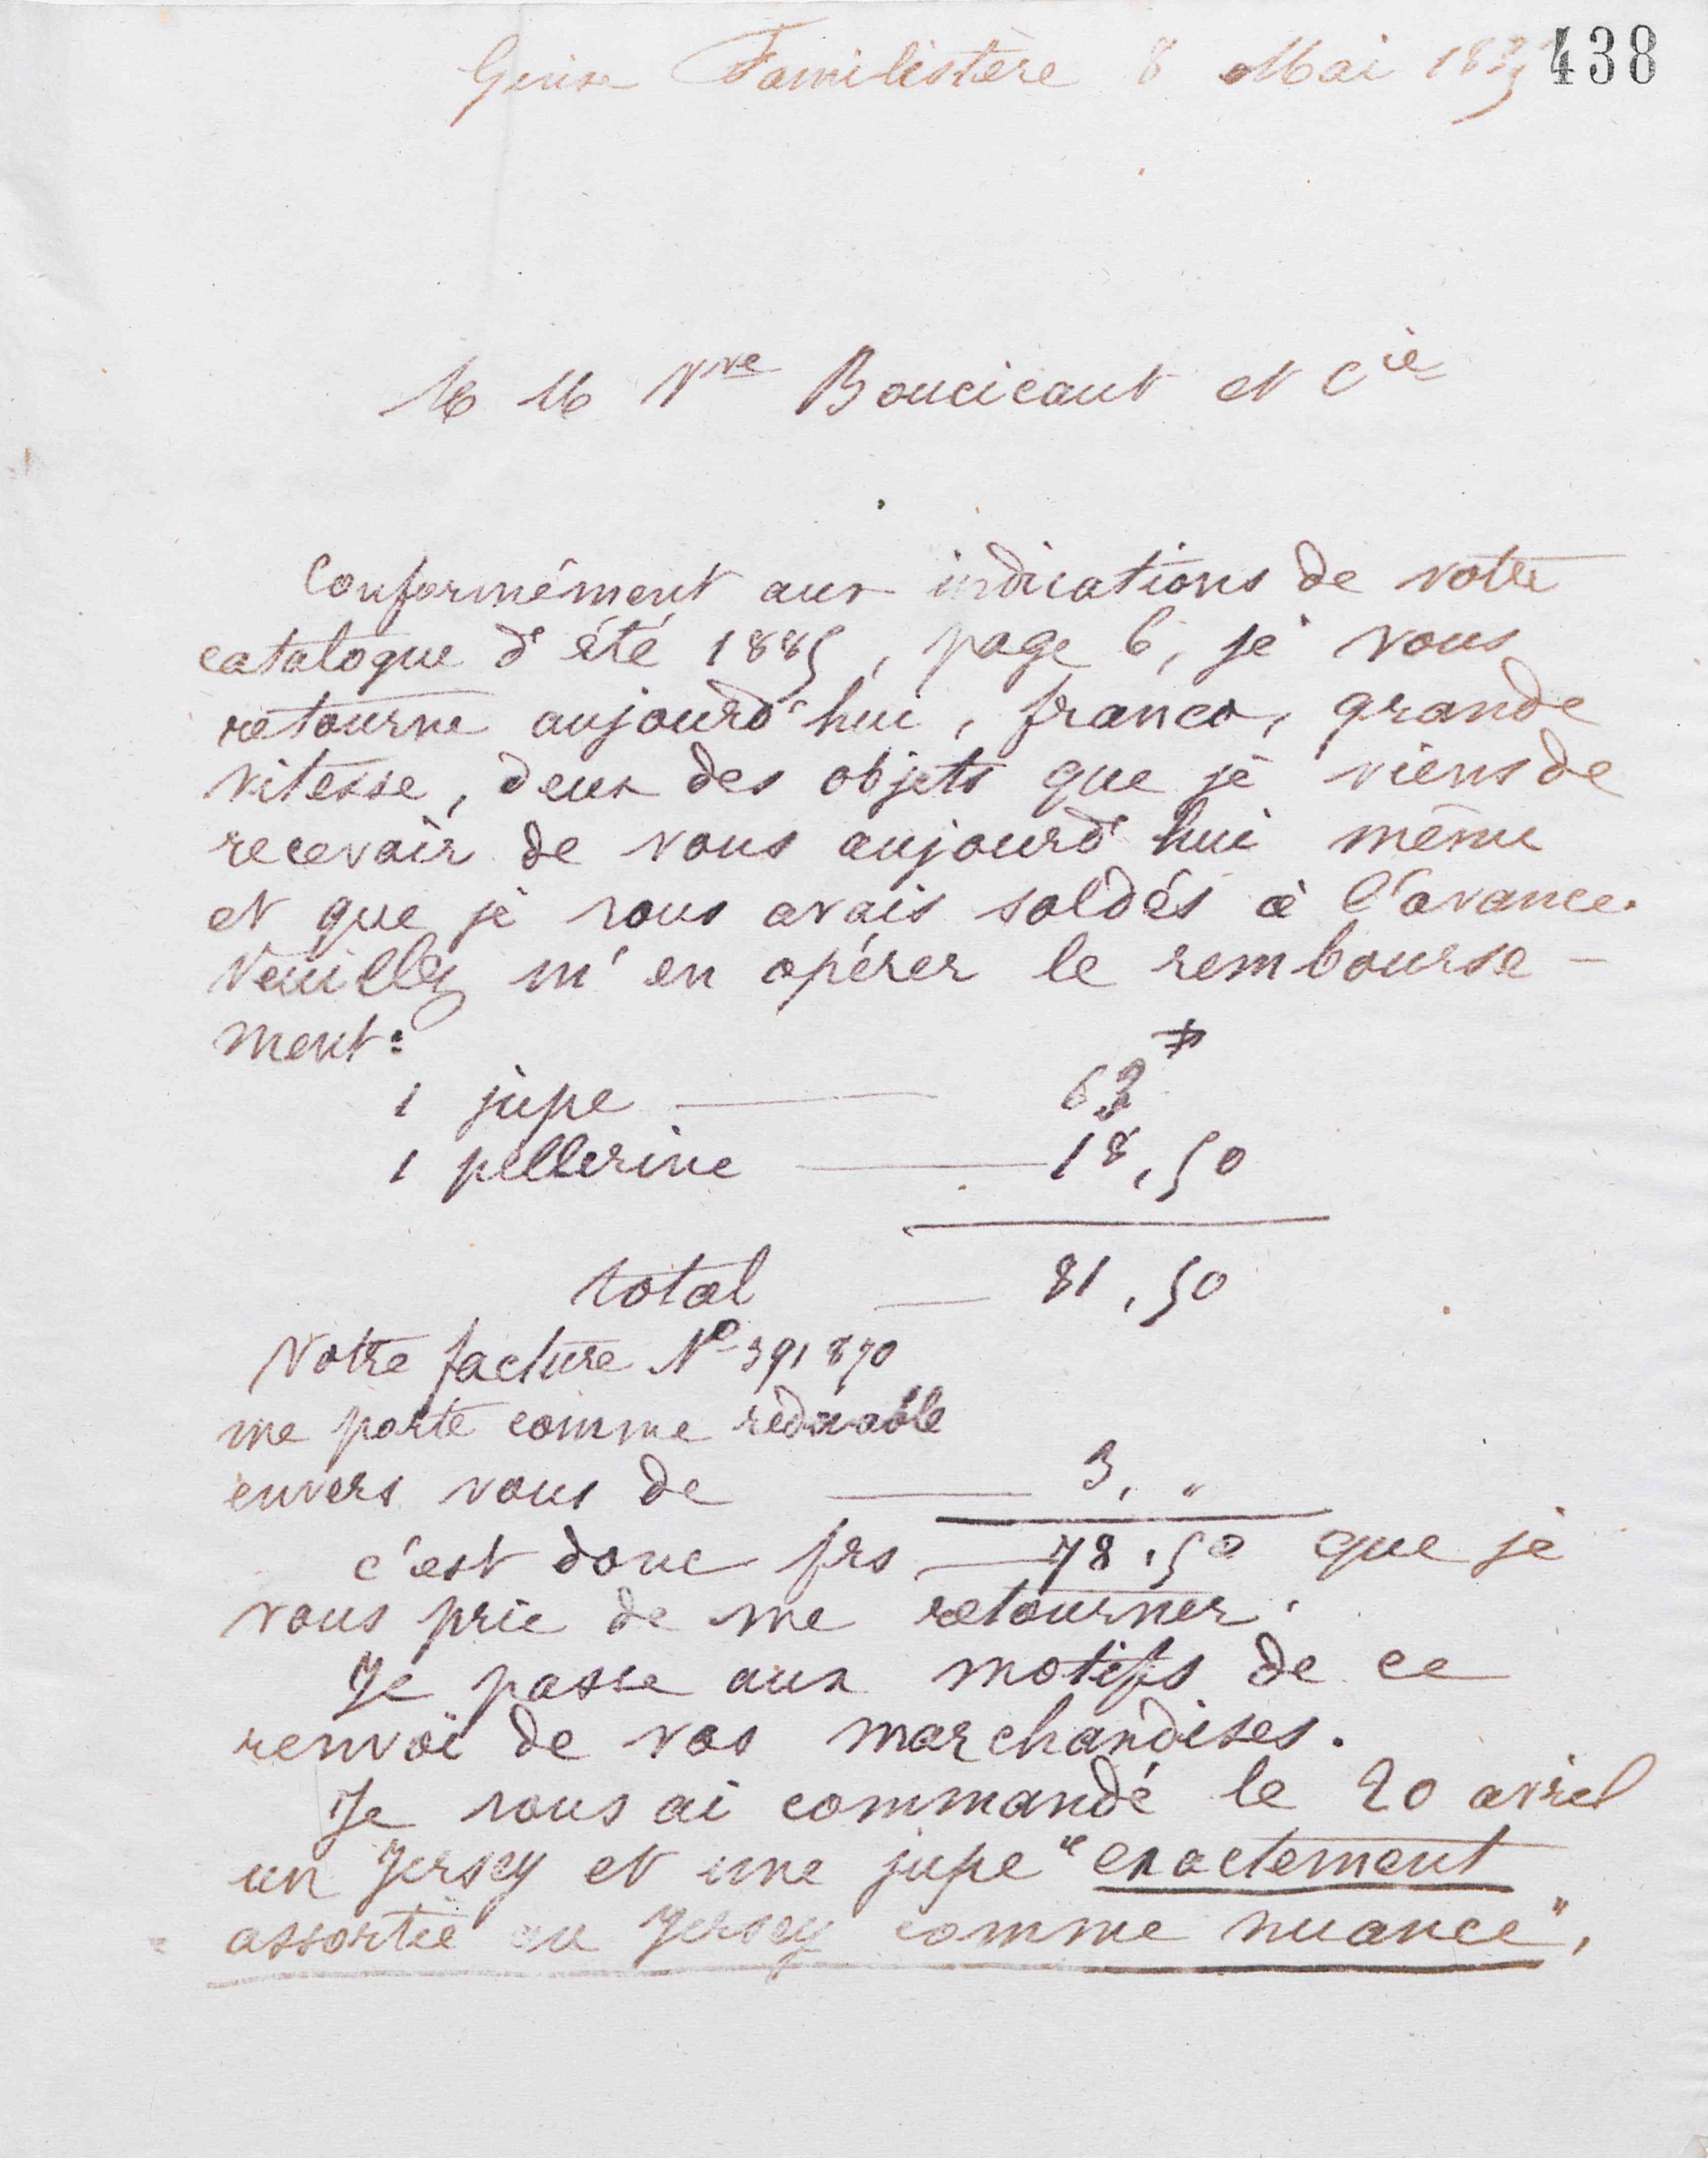 438
Guise Familistère 8 Mai 1885
MM Vve Boucicaut et Cie
Conformément aux indications de votre
catalogue d'été 1885, page 6, je vous
retourne aujourd'hui, franco, grande
vitesse, deux des objets que je viens de
recevoir de vous aujourd'hui même
et que je vous avais soldés à l'avance.
Veuillez m'en opérer le rembourse-
ment:
1 jupe — 63
1 pellerine — 18,50
total — 81,50
Votre facture No 391870
me porte comme redevable
envers vous de — 3, "
c'est donc frs — 78,50 que je
vous prie de me retourner.
Je passe aux motifs de ce
renvoi de vos marchandises.
Je vous ai commandé le 20 avril
un Jersey et une jupe "exactement
assortie au Jersey comme nuance",